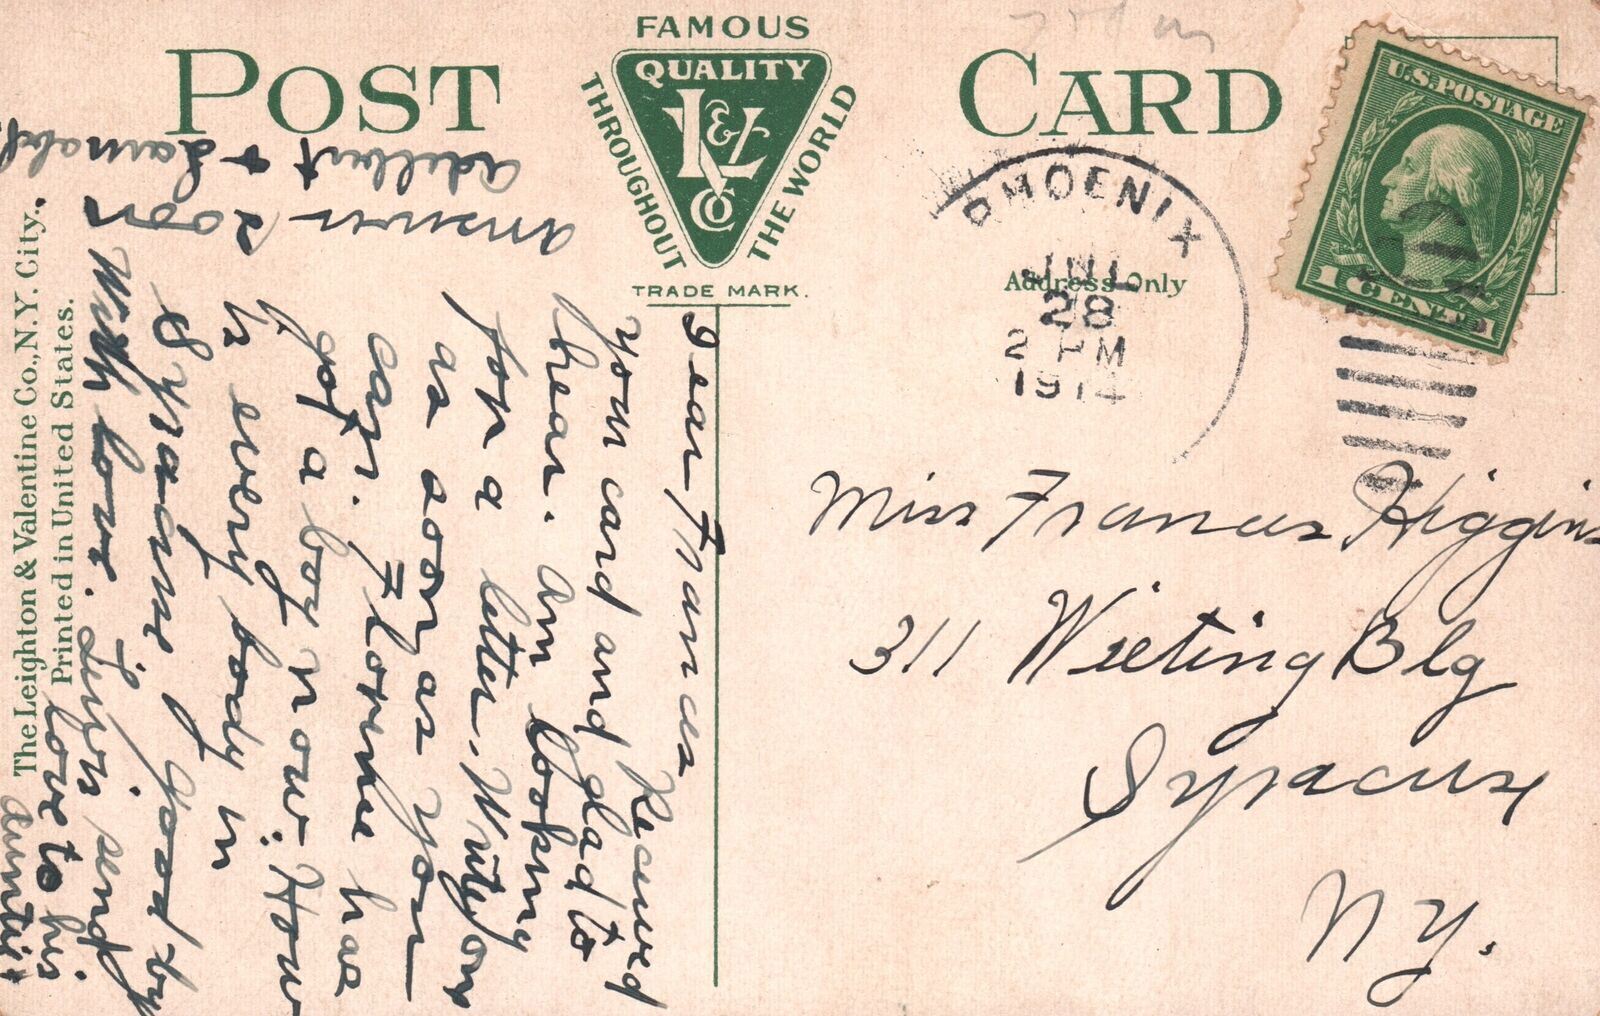 POST CARD
FAMOUS
QUALITY
L&V
Co
THROUGHOUT
THE WORLD
TRADE MARK.
Address Only
PHOENIX
28
2 PM
1914
U.S. POSTAGE
1 CENT 1
Miss Frances Higgins
311 Wieting Blg
Syracuse
N Y.
Dear Frances
Received
your card and glad to
hear. Am looking
for a letter. Write on
as soon as you
can. Florine has
got a boy now. How
is every body in
Syracuse good by
With love. send
love to his
Aunties
answer soon
Adelbert +
The Leighton & Valentine Co., N.Y. City.
Printed in United States.